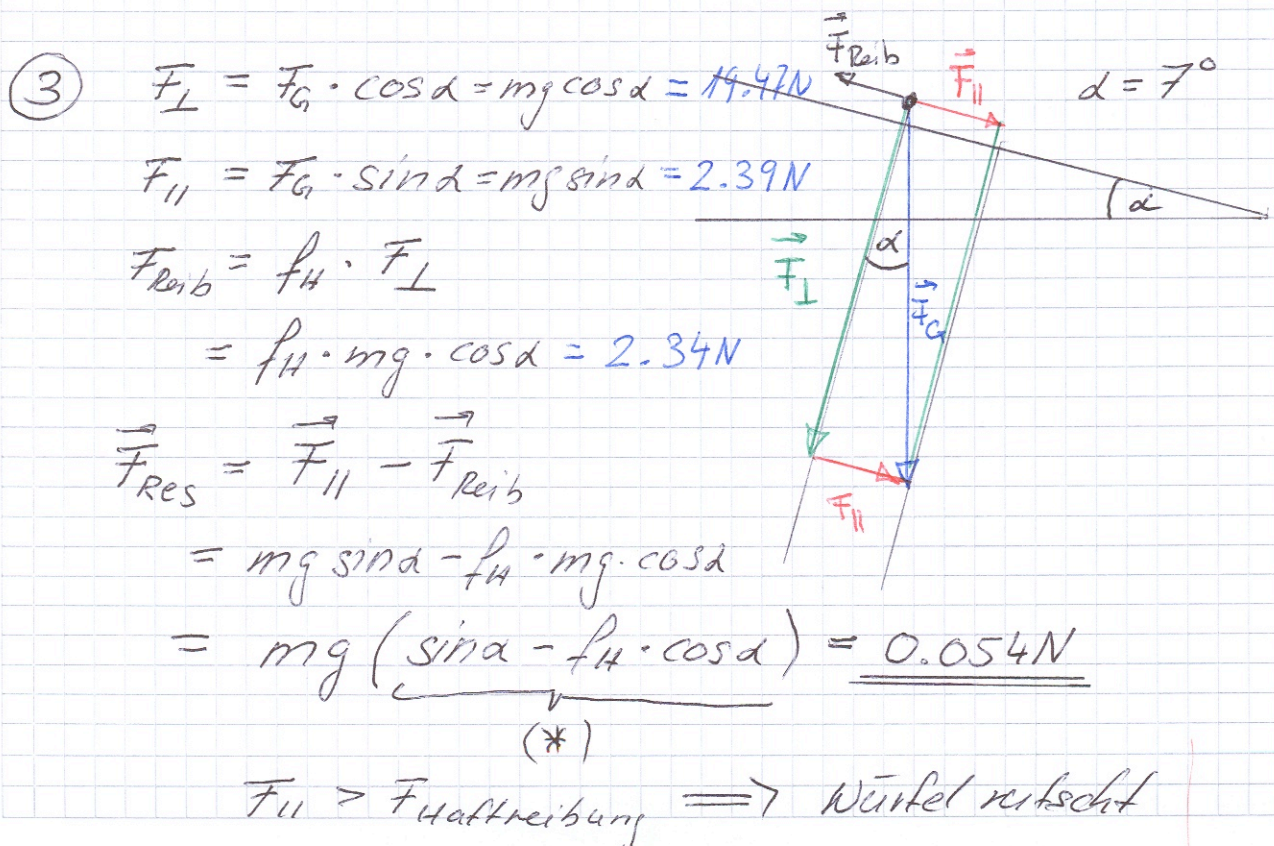 ③ F⊥ = F_G · cosα = mg cosα = 19.47N
F∥ = F_G · sinα = mg sinα = 2.39N
F_Reib = f_H · F⊥
= f_H · mg · cosα = 2.34N
F⃗_Res = F⃗∥ - F⃗_Reib
= mg sinα - f_H · mg · cosα
= mg (sinα - f_H · cosα) = 0.054N
(*)
F∥ > F_Haftreibung ⟹ Würfel rutscht
F⃗_Reib
F⃗∥
α = 7°
α
α
F⃗⊥
F⃗_G
F∥